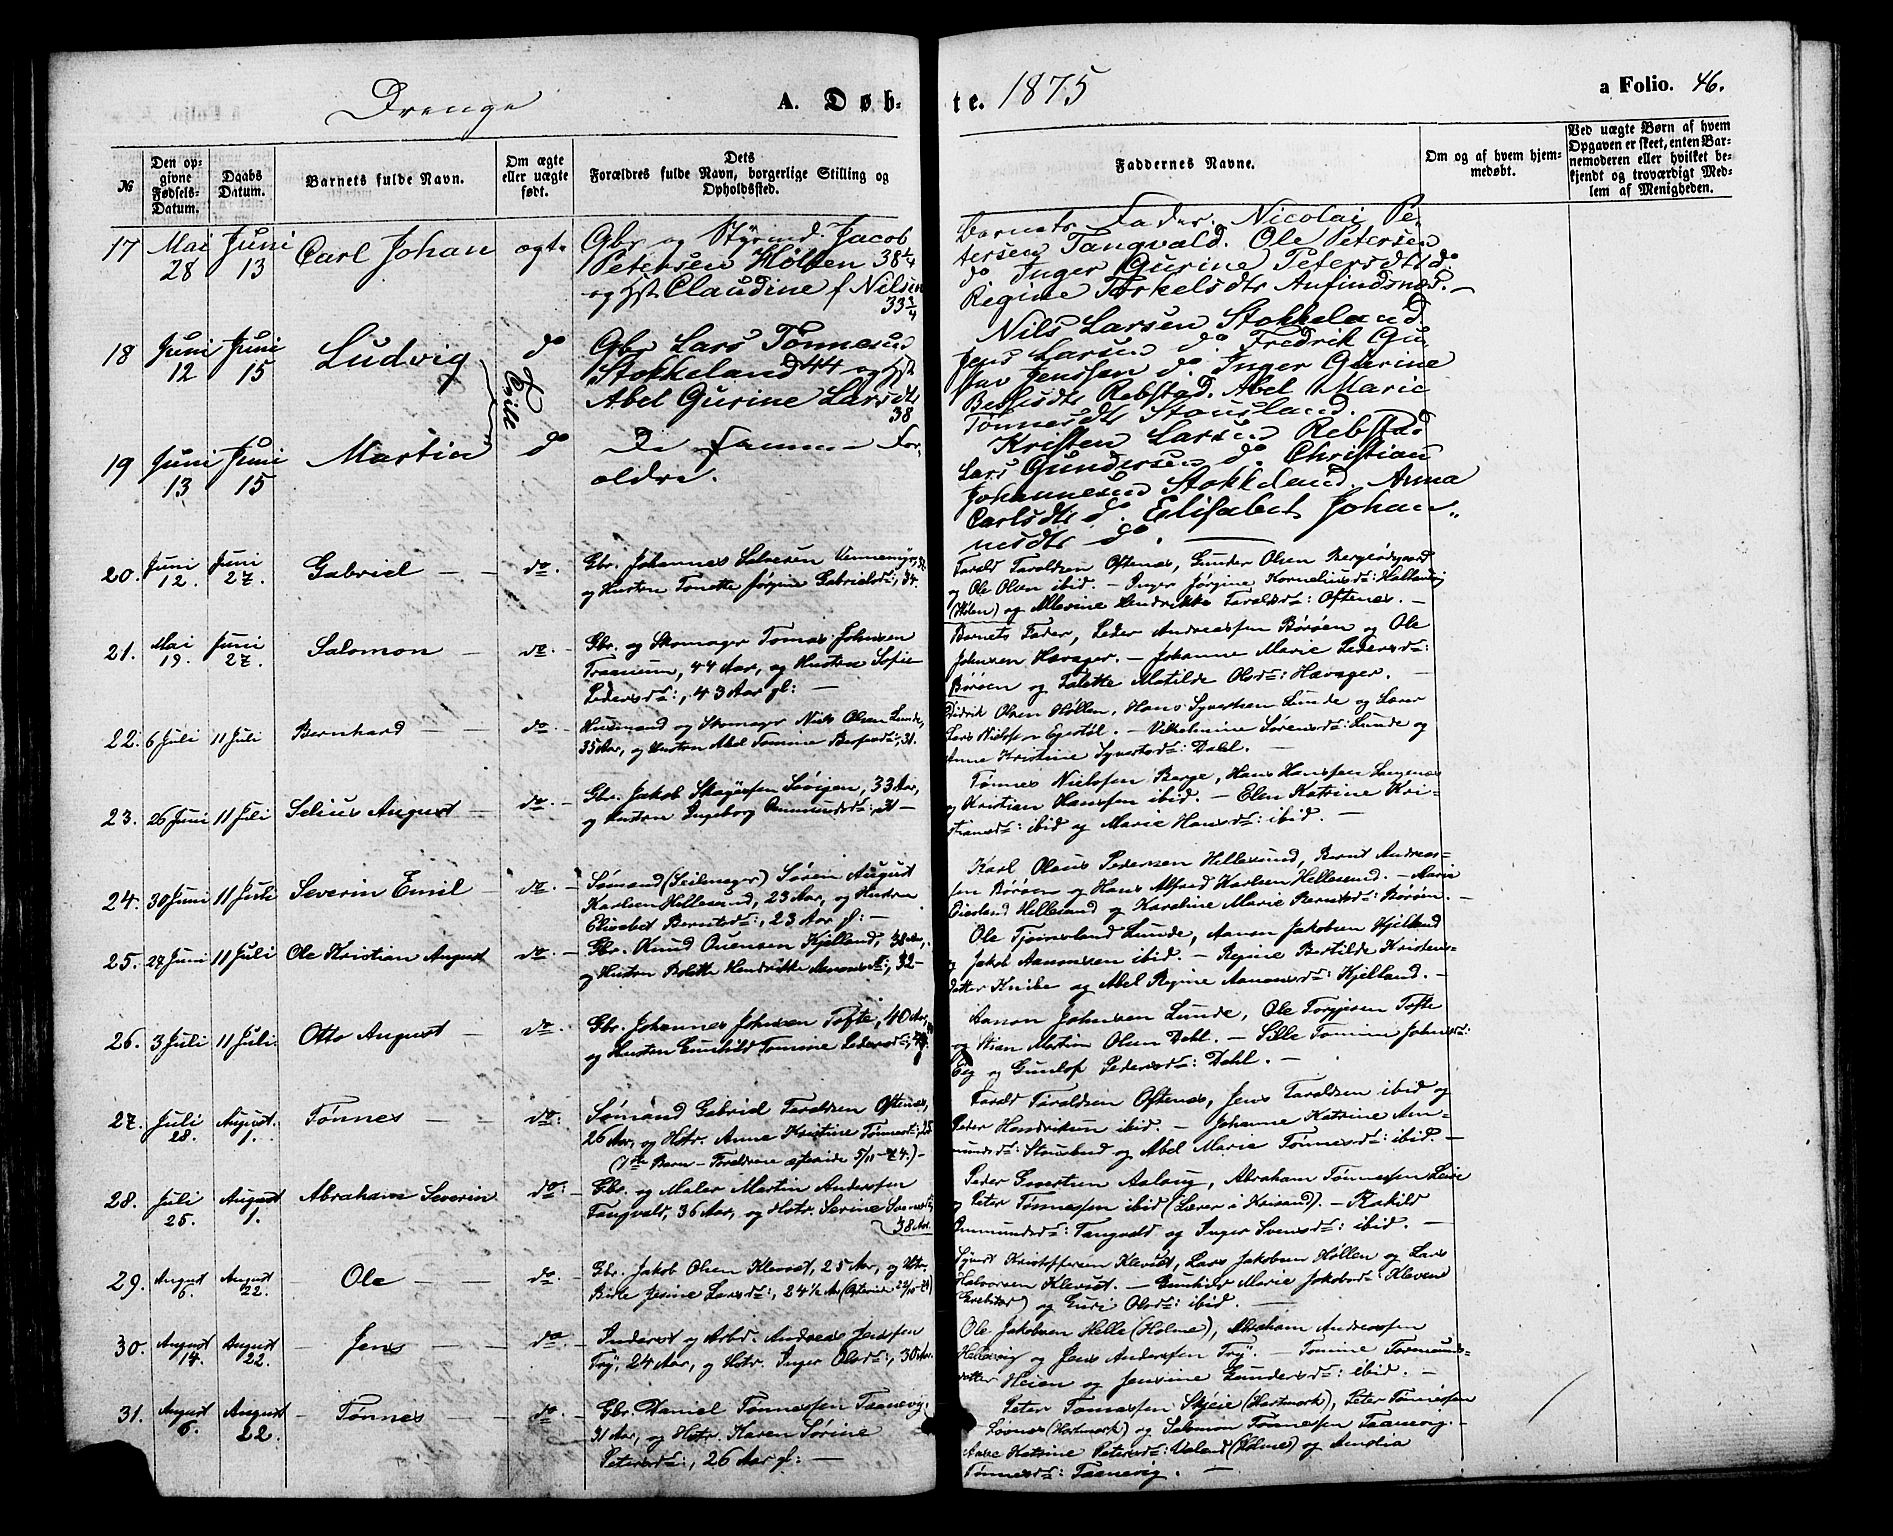 Drenge
A. Døb-
te. 1875
a Folio. 46.
№
Den op-
givne
Fødsels-
Datum.
Daabs
Datum.
Barnets fulde Navn.
Om ægte
eller uægte
født.
Dets
Forældres fulde Navn, borgerlige Stilling og
Opholdssted.
Faddernes Navne.
Om og af hvem hjem-
medøbt.
Ved uægte Børn af hvem
Opgaven er skeet, enten Bar-
nemoderen eller hvilket be-
kjendt og troværdigt Med-
lem af Menigheden.
17 Mai 28 Juni 13 Carl Johan ægte
Gbr og Styrmd. Jacob
Petersen Høllen 38 1/4
og Hst Claudine f Nilsen
33 3/4
Barnets Fader. Nicolai Pe-
tersen Tangvald. Ole Petersen
do Inger Gurine Petersdtr do
Regine Torkelsdtr Aufindsnæs.
18 Juni 12 Juni 15 Ludvig do
Gbr Lars Tønnesen
Stokkeland 44 og Hst
Abel Gurine Larsdtr
38
Nils Larsen Stokkeland.
Jens Larsen do Fredrik Gu-
stav Jenssen do. Inger Gurine
Rebstad. Abel Marie
Tønnesdtr Stousland.
19 Juni 13 Juni 15 Martin do
De samme For-
ældre.
Kristen Larsen Rebstad
Lars Gundersen do Christian
Johannesen Stokkeland. Anna
Carlsdtr do. Elisabet Johan-
nesdtr do.
20. Juni 12. Juni 27. Gabriel do.
Gbr. Johannes Salvesen Vennemyr,
og Hustru Tonette Jørgine Gabrielsd:, 34.
Tarald Taraldsen Oftenæs, Gunder Olsen
og Ole Olsen ibid. – Inger Jørgine Kornelius d:
(Høln) og Alevine Hendrikke Taraldsd: Oftenæs. –
21. Mai 19. Juni 27. Salomon do.
Gbr. og Skomager Tomas Johnsen
Traneum, 44 Aar, og Hustru Sofie
Pedersd:, 43 Aar gl: –
Barnets Fader, Peder Andreassen Børøen og Ole
Johnsen Havager. – Johanne Marie Pedersd:
Børøen og Talette Matilde Olsd: Havager. –
22. 6 Juli 11 Juli Bernhard do.
Husmand og Skomager Niels Olsen Lunde,
35 Aar, og Hustru Abel Tomine 31.
Didrik Olsen Høllen, Hans Syvertsen Lunde og Lærer
Lars Nielsen Egestøl. – Vilhelmine Sørensd: Lunde og
Anne Kristine Syvertsd: Dahl. –
23. 26 Juni 11 Juli Selius August do.
Gbr. Jakob Skøiessen 33 Aar,
og Hustru Ingeborg Omundsd:, 31 –
Tønnes Nielssen Berge, Hans Hanssen Langenæs
og Kristian Hanssen ibid. – Elen Katrine Kri-
stiansd: ibid og Marie Hansd: ibid. –
24. 30 Juni 11 Juli Severin Emil do.
Sømand (Seilmager) Søren August
Karlsen Hellesund, 23 Aar, og Hustru
Elisabet Berntsd:, 23 Aar gl: –
Karl Olaus Pedersen Hellesund, Bernt Andreas-
sen Børøen og Hans Alfred Karlsen Hellesund. – Marie
Hellesund og Karoline Marie Berntsd: Børøen. –
25. 24 Juni 11 Juli Ole Kristian August do.
Gbr. Knud Ouensen Kjelland, 38 Aar,
og Hustru Bolette Hendrikke Aanonsd:, 32 –
Ole Tjomsland Lunde, Aanon Jakobsen Kjelland
og Jakob Aanonsen ibid. – Regine Bertilde Kristens-
datter Knibe og Abel Regine Aanonsd: Kjelland. –
26. 3 Juli 11 Juli Otto August do.
Gbr. Johannes Johnsen Tofte, 40 Aar,
og Hustru Gunhild Tomine Pedersd:,
Aanon Johnsen Lunde, Ole Torgjusen Tofte
og Stian Martin Olsen Dahl. – Sille Tomine Johnsd:
Eeg og Gunlof Pedersd: Dahl. –
27. Juli 28. August 1. Tønnes do:
Sømand Gabriel Taraldsen Oftenæs,
26 Aar, og Hstr. Anna Kristine Tønnesd:, 25
(1ste Barn – Forældrene ægteviede 5/11 – 74.) –
Tarald Taraldsen Oftenæs, Jens Taraldsen ibid og
Peder Hendriksen ibid. – Johanne Katrine Am-
mundsd: Stousland og Abel Marie Tønnesd: ibid. –
28. Juli 25. August 1. Abraham Severin do:
Gbr. og Maler Martin Anderssen
Tangvald, 36 Aar, og Hstr. Serine Svensd:
38 Aar.
Peder Govertsen Aaloug, Abraham Tønnessen Leire
og Peter Tønnessen ibid (Lærer i Krisand). – Rakild
Ommundsd: Tangvald og Inger Svensd: ibid. –
29. August 6. August 22. Ole do.
Gbr. Jakob Olsen Klevset, 25 Aar, og Hstr.
Birte Jesine Larsd:, 24 1/2 Aar
Syvert Kristoffersen Klevset, Lars Jakobsen Høllen og Lars
Halvorsen Klevset. – Gunhilde Marie Jakobsd: Kleven
og Guri Olsd: ibid. –
30. August 14. August 22. Jens do
Inderst og Arbd. Andreas Jenssen
Try, 24 Aar, og Hstr. Inger Olsd:, 30 Aar.
Ole Jakobsen Helle (Holme), Abraham Anderssen
Hellevig og Jens Anderssen Try. – Tomine Tormunds-
datter Heien og Jensine Gundersd: ibid. –
31. August 6. August 22. Tønnes do.
Gbr. Daniel Tønnessen Taanevig,
31 Aar, og Hstr. Karen Sørine
Petersd:, 26 Aar gl: –
Peter Tomassen Skjeie (Hartmark), Peter Tønnessen
(Hartmark) og Salomon Tønnessen Taanevig. –
Katrine Petersd: Valand (Holme) og Amalia
Tønnesd: Taanevig. –